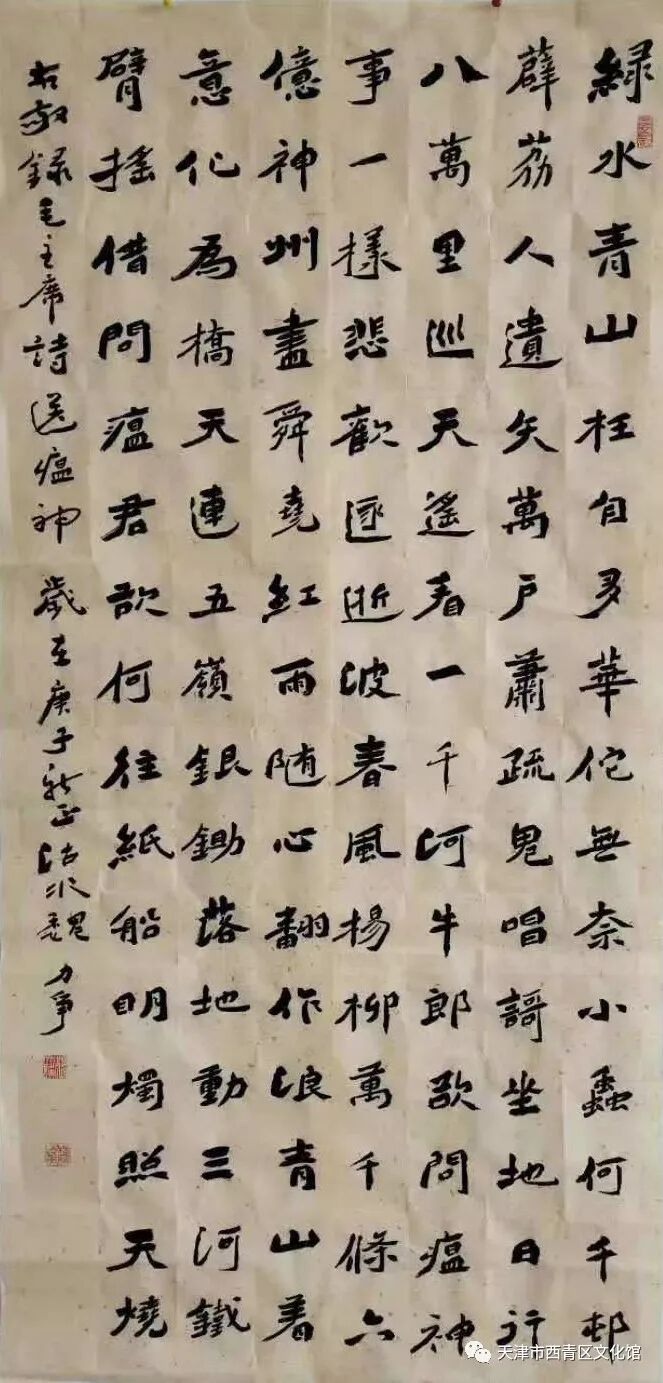 緑水青山枉自多華佗無奈小蟲何千邨
薜荔人遺矢萬戶蕭疏鬼唱謌坐地日行
八萬里巡天遥看一千河牛郎欲問瘟神
事一樣悲歡逐逝波春風楊柳萬千條六
億神州盡舜堯紅雨随心翻作浪青山着
意化為橋天連五嶺銀鋤落地動三河鐵
臂摇借問瘟君欲何往紙船明燭照天燒
右敬録毛主席詩送瘟神 歲在庚子新正沽水魏力争
天津市西青区文化馆